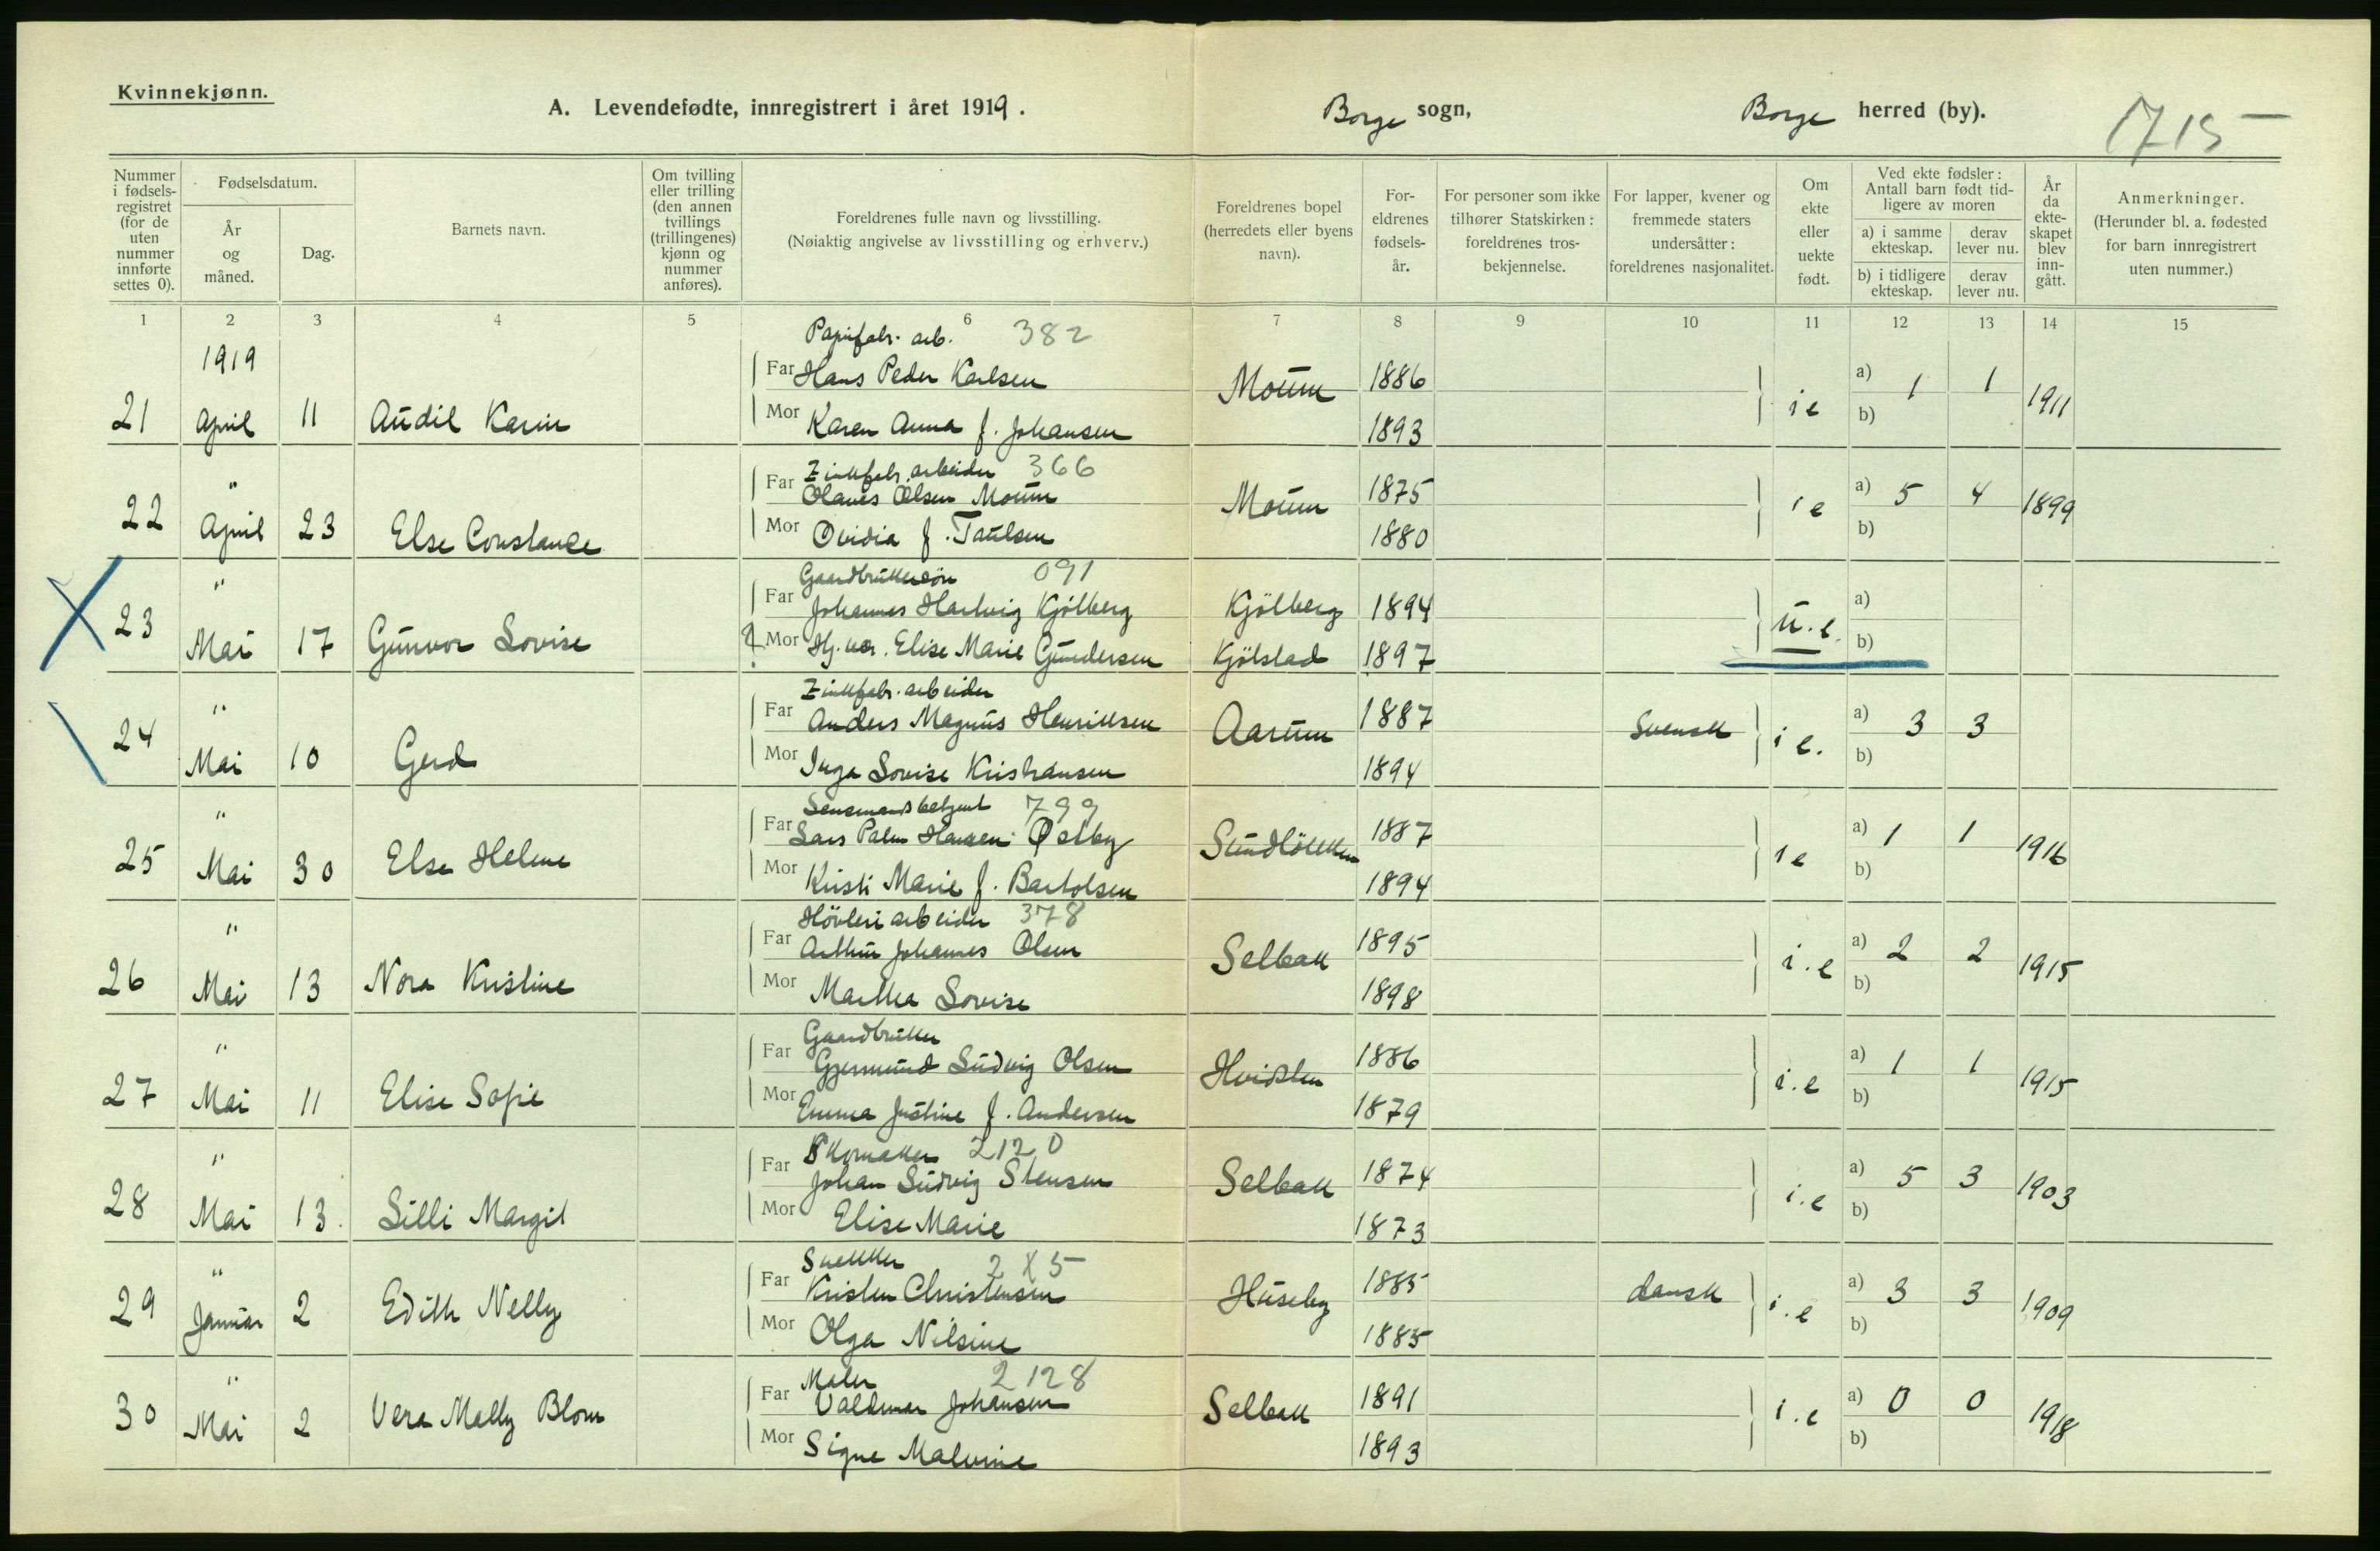 Kvinnekjønn.
A. Levendefødte, innregistrert i året 1919. Borge sogn, Borge herred (by). 1715
Nummer i fødselsregistret (for de uten nummer innførte settes 0).
Fødselsdatum.
År og måned.
Dag.
Barnets navn.
Om tvilling eller trilling (den annen tvillings (trillingenes) kjønn og nummer anføres).
Foreldrenes fulle navn og livsstilling.
(Nøiaktig angivelse av livsstilling og erhverv.)
Foreldrenes bopel (herredets eller byens navn).
Foreldrenes fødselsår.
For personer som ikke tilhører Statskirken: foreldrenes trosbekjennelse.
For lapper, kvener og fremmede staters undersåtter: foreldrenes nasjonalitet.
Om ekte eller uekte født.
Ved ekte fødsler: Antall barn født tidligere av moren
a) i samme ekteskap.
derav lever nu.
b) i tidligere ekteskap.
derav lever nu.
År da ekteskapet blev inngått.
Anmerkninger.
(Herunder bl. a. fødested for barn innregistrert uten nummer.)
1 2 3 4 5 6 7 8 9 10 11 12 13 14 15
1919 Papirfabr. arb. 382
Far Hans Peder Karlsen Moum 1886 i e a) 1 1 1911
21 April 11 Audil Karin Mor Karen Anna f. Johansen 1893 b)
" Zinkfabr. arbeider 366
Far Olaves Olsen Moum Moum 1875 i e a) 5 4 1899
22 April 23 Else Constance Mor Ovidia f. Paulsen 1880 b)
" Gaardbrukersön 091
Far Johannes Hartvig Kjölberg Kjölberg 1894 u.e. a)
23 Mai 17 Gunvor Lovise Mor Hj. vær. Elise Marie Gundersen Kjölstad 1897 b)
" Zinkfabr. arbeider
Far Anders Magnus Henriksen Aarum 1887 Svensk i e. a) 3 3
24 Mai 10 Gerd Mor Inga Lovise Kristiansen 1894 b)
" Lensmandsbetjent 799
Far Lars Palm Hansen Østby Sundlökken 1887 i e a) 1 1 1916
25 Mai 30 Else Helene Mor Kristi Marie f. Bartolsen 1894 b)
" Hövleriarbeider 378
Far Arthur Johannes Olsen Selbak 1895 i.e a) 2 2 1915
26 Mai 13 Nora Kristine Mor Martha Lovise 1898 b)
" Gaardbruker
Far Gjermund Ludvig Olsen Hvidsten 1886 i.e a) 1 1 1915
27 Mai 11 Elise Sofie Mor Emma Justine f. Andersen 1879 b)
" Skomaker 2120
Far Johan Ludvig Stensen Selbak 1874 i.e a) 5 3 1903
28 Mai 13. Lilli Margit Mor Elise Marie 1873 b)
" Snekker 2 X 5
Far Kristen Christensen Huseby 1885 dansk i.e a) 3 3 1909
29 Januar 2 Edith Nelly Mor Olga Nilsine 1885 b)
" Maler 2128
Far Valdemar Johansen Selbak 1891 i.e a) 0 0 1918
30 Mai 2 Vera Mally Blom Mor Signe Malvine 1893 b)